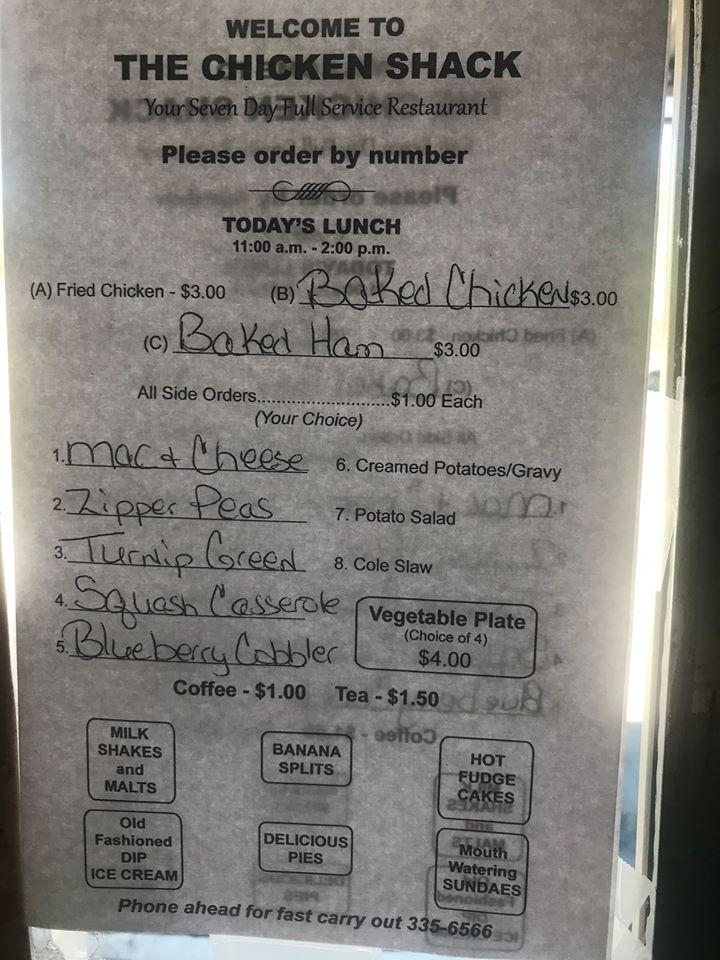 WELCOME TO
THE CHICKEN SHACK
Your Seven Day Full Service Restaurant
Please order by number
TODAY'S LUNCH
11:00 a.m. - 2:00 p.m.
(A) Fried Chicken - $3.00 (B) Baked Chicken $3.00
(C) Baked Ham $3.00
All Side Orders..........................$1.00 Each
(Your Choice)
1. Mac & Cheese 6. Creamed Potatoes/Gravy
2. Zipper Peas 7. Potato Salad
3. Turnip Green 8. Cole Slaw
4. Squash Casserole
5. Blueberry Cobbler
Vegetable Plate
(Choice of 4)
$4.00
Coffee - $1.00 Tea - $1.50
MILK
SHAKES
and
MALTS
BANANA
SPLITS
HOT
FUDGE
CAKES
Old
Fashioned
DIP
ICE CREAM
DELICIOUS
PIES
Mouth
Watering
SUNDAES
Phone ahead for fast carry out 335-6566